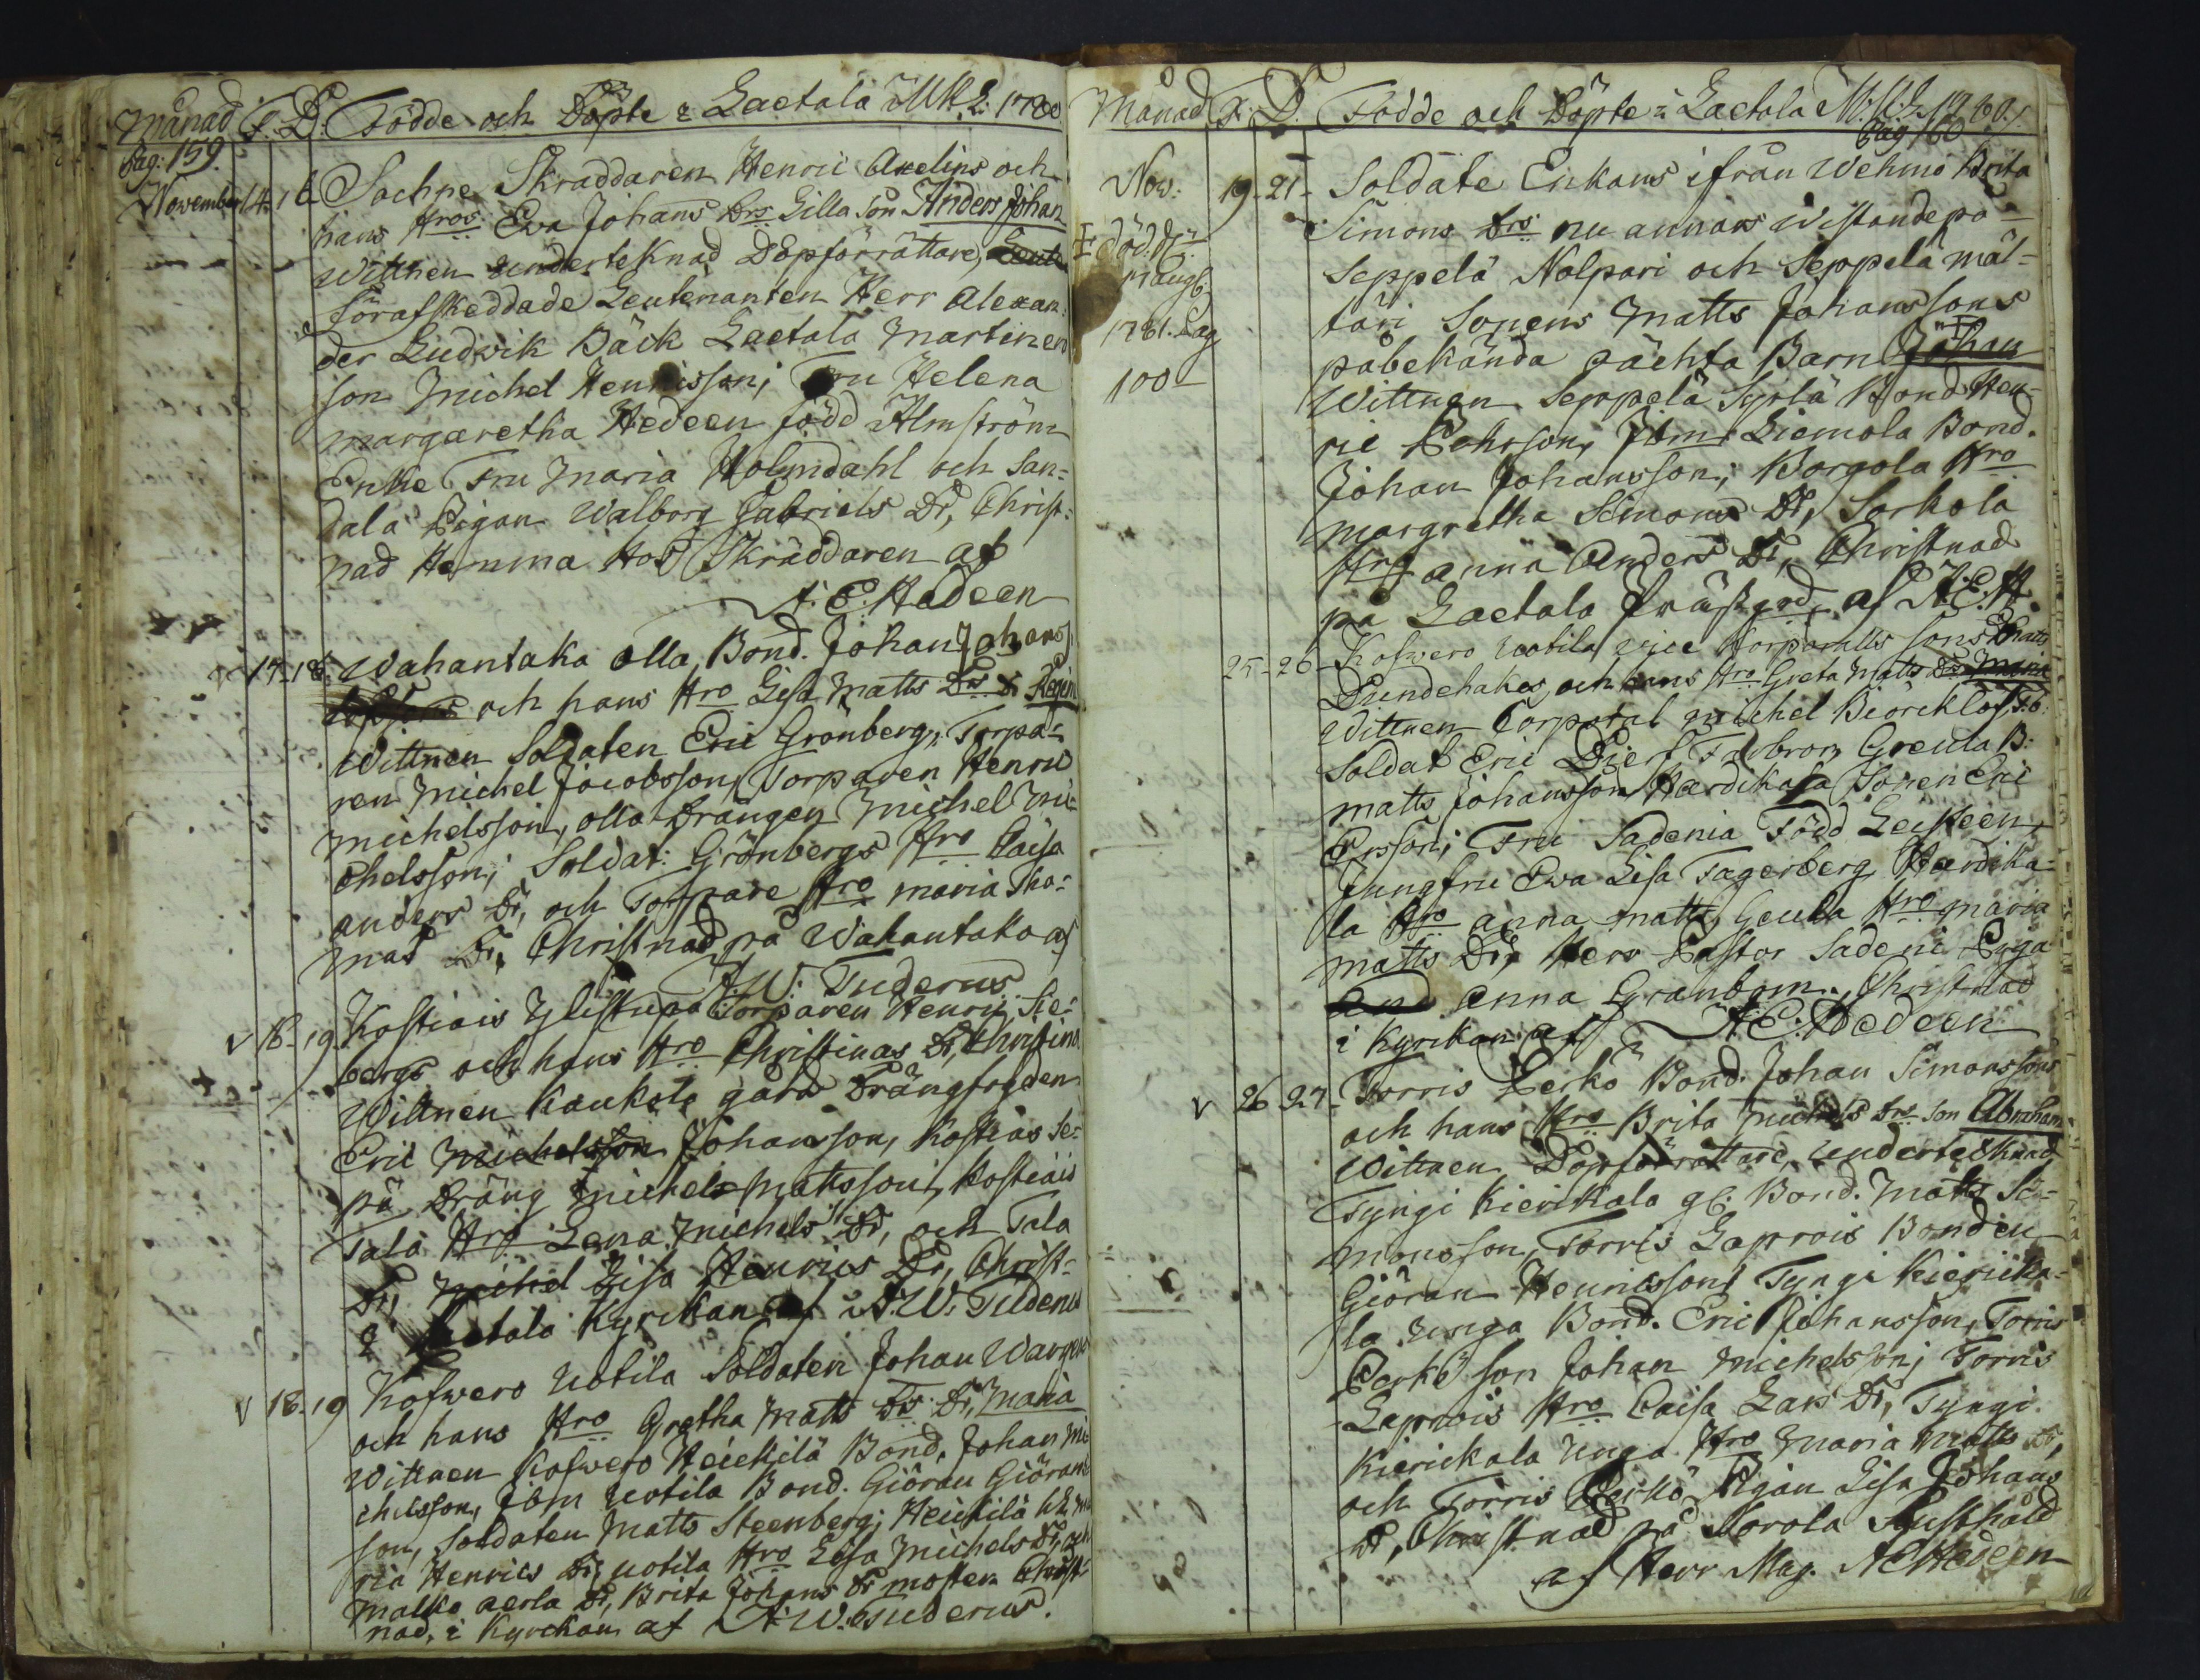 Månad F. D. Födde och Döpte i Laetala MK 1780
Pag: 159
November 14. 16 Sochne Skraddaren Henric Axelins och
hans Hros Eva Johans Drs Lilla Son Anders Johan
Wittnen underteknad Döpförrättare,
Förafskeddade Leutenanten Herr Alexan-
der Ludvik Bäck Laetala Martinen
son Michel Henricsson; Fru Helena
Margaretha Hedeen född Almström
Enke Fru Maria Holmdahl och San-
dala Pigan Walborg Gabriels Dr, Christ-
nad Hemma Hos Skräddaren af
A: E. Hadeen
17-18. Wahantaka Olla Bond. Johan Johans
och hans Hro Lisa Matts Drs Dr Regin
Wittnen Soldaten Eric Grönberg, Torpa-
ren Michel Jacobsson, Torparen Henric
Michelsson, Olla Drängen Michel Mi-
chelsson; Soldat: Grönbergs Hro Caisa
Anders Dr, och Torpare Hro Maria Tho-
mas Dr, Christnad på Wahantaka af
A: W: Tuderus
V 18-19 Kostiais Ylistupa Torparen Henric Sie-
bergs och hans Hro Christinas Dr, Christina
Wittnen Kaukola gård Drängfogden
Eric Michelsson Johansson, Kostias Se-
pä Dräng Michel Mattsson, Kostiais
Tala Hro Lena Michels Dr, och Tala
Dr, Michel Lisa Henrics Dr, Christ-
i Laetala Kyrckan af A: W: Tuderus
V 18-19 Kofwero Uotila Soldaten Johan Wargen
och hans Hro Gretha Matts Drs Dr, Maria
Wittnen Kofwero Heickilä Bond. Johan Mi-
chelsson, Ibm Uotila Bond. Giöran Giörans
son, Soldaten Matts Steenberg; Heickilä
ria Henrics Dr, Uotila Hro Lisa Michels Dr, och
Malko aerla Dr, Brita Johans Dr moster Christ-
nad, i Kyrckan af A: W: Tuderus.
Månad F. D. Födde och Döpte i Laetala M: K: 1780.
Pag 160
Nov: 19-21- Soldate Enkans ifrån Wehmo Brita
Simons Drs nu annars Wistande på
Död d:
17 Augt:
Seppelä Nolpari och Seppelä mäl-
1781. Pag
täri Sonens Matts Johanssons
100
påbekända oächta Barn Johan
Wittnen Seppelä Syrlä Bond. Hen-
ric Pehrsson, Ibm Liemola Bond.
Johan Johansson; Borgola Hro
Margretha Simons Dr, Sorkola
Hro Anna Anders Dr, Christnad
på Laetala Prästgrd, af A: E: H.
25-26- Kofwero Uotila vice Corporalls Sons Matts
och hans Hro Greta Matts Drs Maria
Wittnen Corporal Michel Biörcklöf,
Soldat Eric Dierf, Greula B:
Matts Johansson, Hardikala Sonen Eric
Ersson; Fru Sadenia Född Leikeen,
Jungfru Eva Lisa Fagerberg, Hardika-
la Hro Anna Matts, Geula Hro Maria
Matts Dr, Herr Pastor Sadeni Piga
Anna Granbom. Christnad
i Kyrckan af A: E: Hedeen
V 26 27- Torris Perkö Bond. Johan Simonssons
och hans Hro Brita Michels Drs Son Abraham
Wittnen Döpförrättare, underteknad
Tyngi Kierikala gl: Bond. Matts Si-
monsson, Torris Laprois Bonden
Giöran Henricsson, Tyngi Kierika-
la unga Bond. Eric Johansson, Torris
Perkö son Johan Michelsson; Torris
Laprois Hro Caisa Lars Dr, Tyngi
Kierickala unga Hro Maria Matts Dr,
och Torris Perkö Pigan Lisa Johans
Dr, Christnad på Sorola Rusthåld
af Herr Mag. A E Hedeen